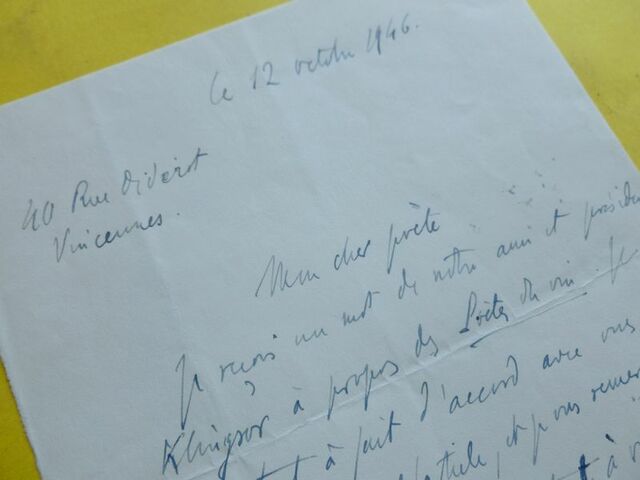 le 12 octobre 1946.
40 Rue Diderot
Vincennes.
Mon cher poète
Je reçois un mot de notre ami et présiden
Klingsor à propos des Poètes du vin. Je
t à fait d'accord avec vous
article, et je vous remer
à v